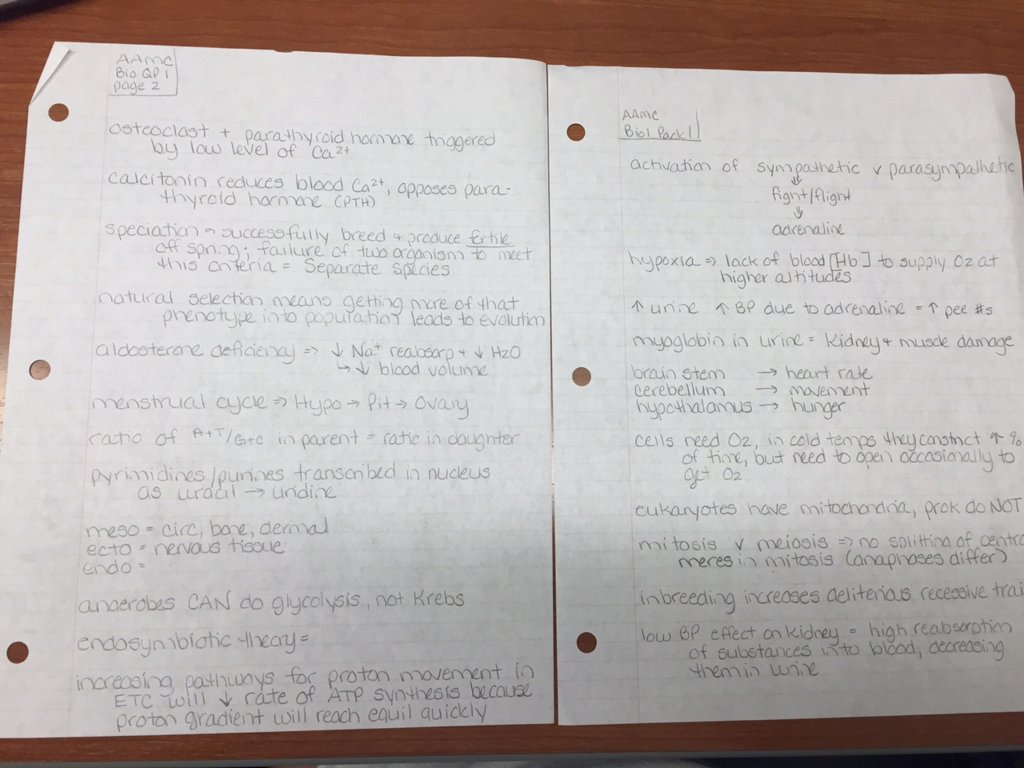 AAMC
Bio QP1
page 2
osteoclast + parathyroid hormone triggered
by low level of Ca²⁺
calcitonin reduces blood Ca²⁺, opposes para-
thyroid hormone (PTH)
speciation → successfully breed + produce fertile
off spring; failure of two organism to meet
this criteria = separate species
natural selection means getting more of that
phenotype into population leads to evolution
aldosterone deficiency ⇒ ↓ Na⁺ reabsorp + ↓ H2O
↳ ↓ blood volume
menstrual cycle → Hypo → Pit → Ovary
ratio of A+T/G+C in parent = ratio in daughter
pyrimidines/purines transcribed in nucleus
as uracil → uridine
meso = circ, bone, dermal
ecto = nervous tissue
endo =
anaerobes CAN do glycolysis, not Krebs
endosymbiotic theory =
increasing pathways for proton movement in
ETC will ↓ rate of ATP synthesis because
proton gradient will reach equil quickly
AAMC
Bio1 Pack 1
activation of sympathetic v parasympathetic
↓
fight/flight
↓
adrenaline
hypoxia ⇒ lack of blood [Hb] to supply O2 at
higher altitudes
↑ urine ↑ BP due to adrenaline = ↑ pee #s
myoglobin in urine = kidney + muscle damage
brain stem → heart rate
cerebellum → movement
hypothalamus → hunger
cells need O2, in cold temps they constrict ↑ %
of time, but need to open occasionally to
get O2
eukaryotes have mitochondria, prok do NOT
mitosis v meiosis ⇒ no splitting of centro
meres in mitosis (anaphases differ)
inbreeding increases deliterious recessive trai
low BP effect on kidney = high reabsorption
of substances into blood, decreasing
them in urine